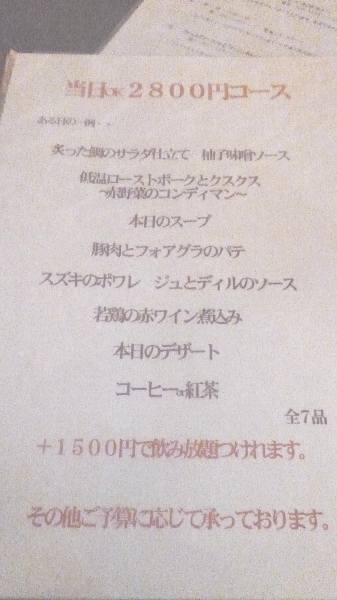 当日OK 2800円コース
ある日の一例・・
炙った鯛のサラダ仕立て 柚子味噌ソース
低温ローストポークとクスクス
~赤野菜のコンディマン~
本日のスープ
豚肉とフォアグラのパテ
スズキのポワレ ジュとディルのソース
若鶏の赤ワイン煮込み
本日のデザート
コーヒーor紅茶
全7品
+1500円で飲み放題つけれます。
その他ご予算に応じて承っております。